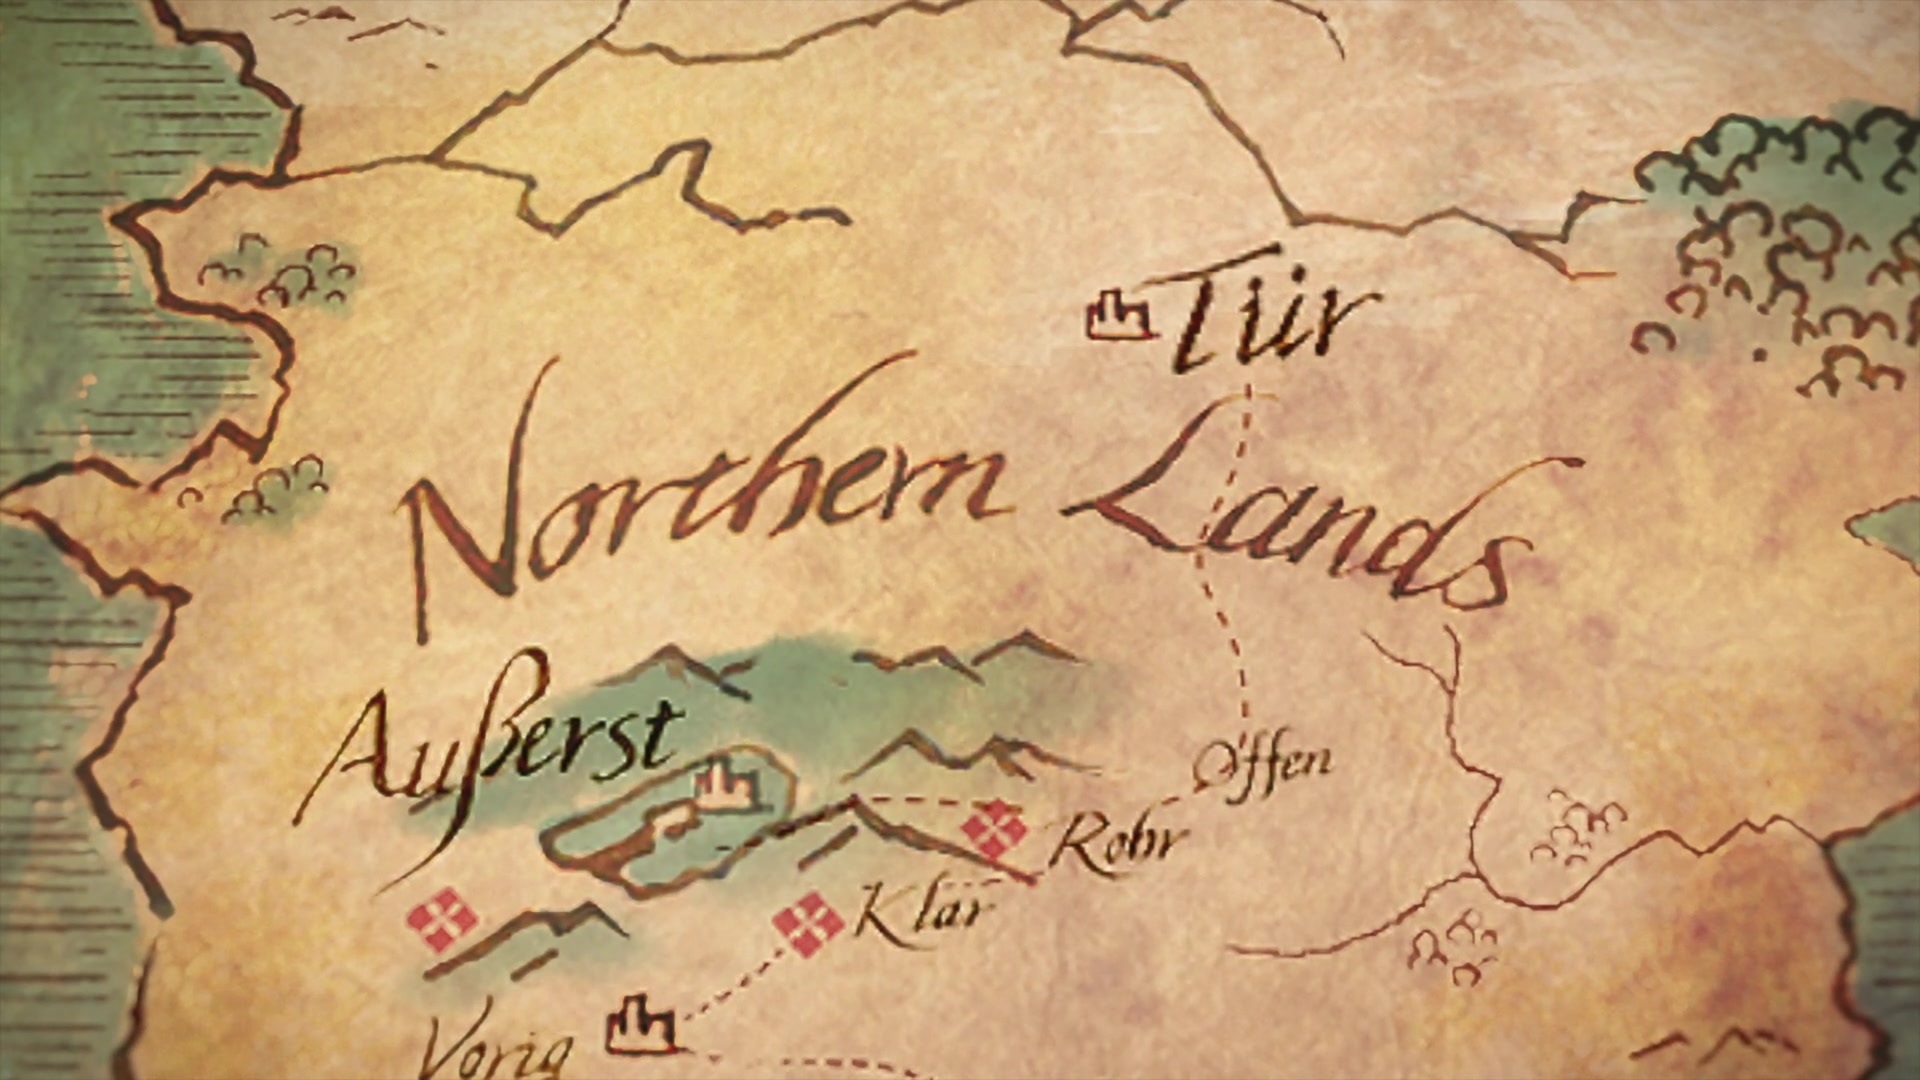 Tür
Northern Lands
Außerst
Offen
Rohr
Klar
Vorig